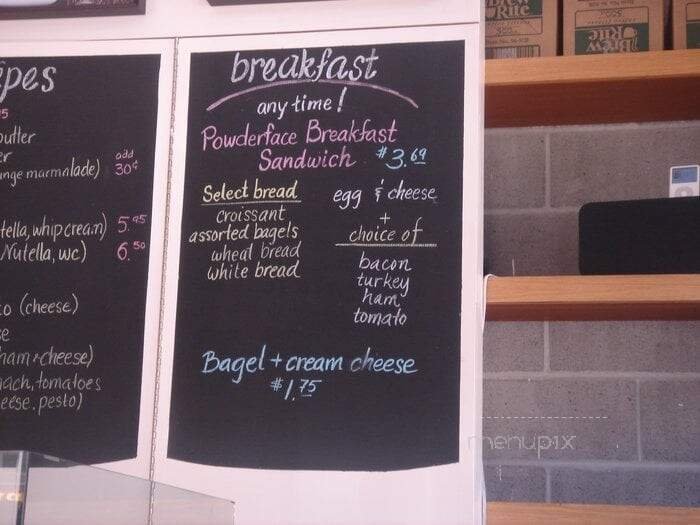 pes
utter
er
nge marmalade)
add
30¢
tella, whip cream) 5.95
Nutella, wc) 6.50
o (cheese)
se
ham + cheese)
ach, tomatoes
eese, pesto)
breakfast
any time!
Powderface Breakfast
Sandwich $3.69
Select bread
croissant
assorted bagels
wheat bread
white bread
egg & cheese
+
choice of
bacon
turkey
ham
tomato
Bagel + cream cheese
$1.75
Brew
Rite
Brew
Rite
menupix